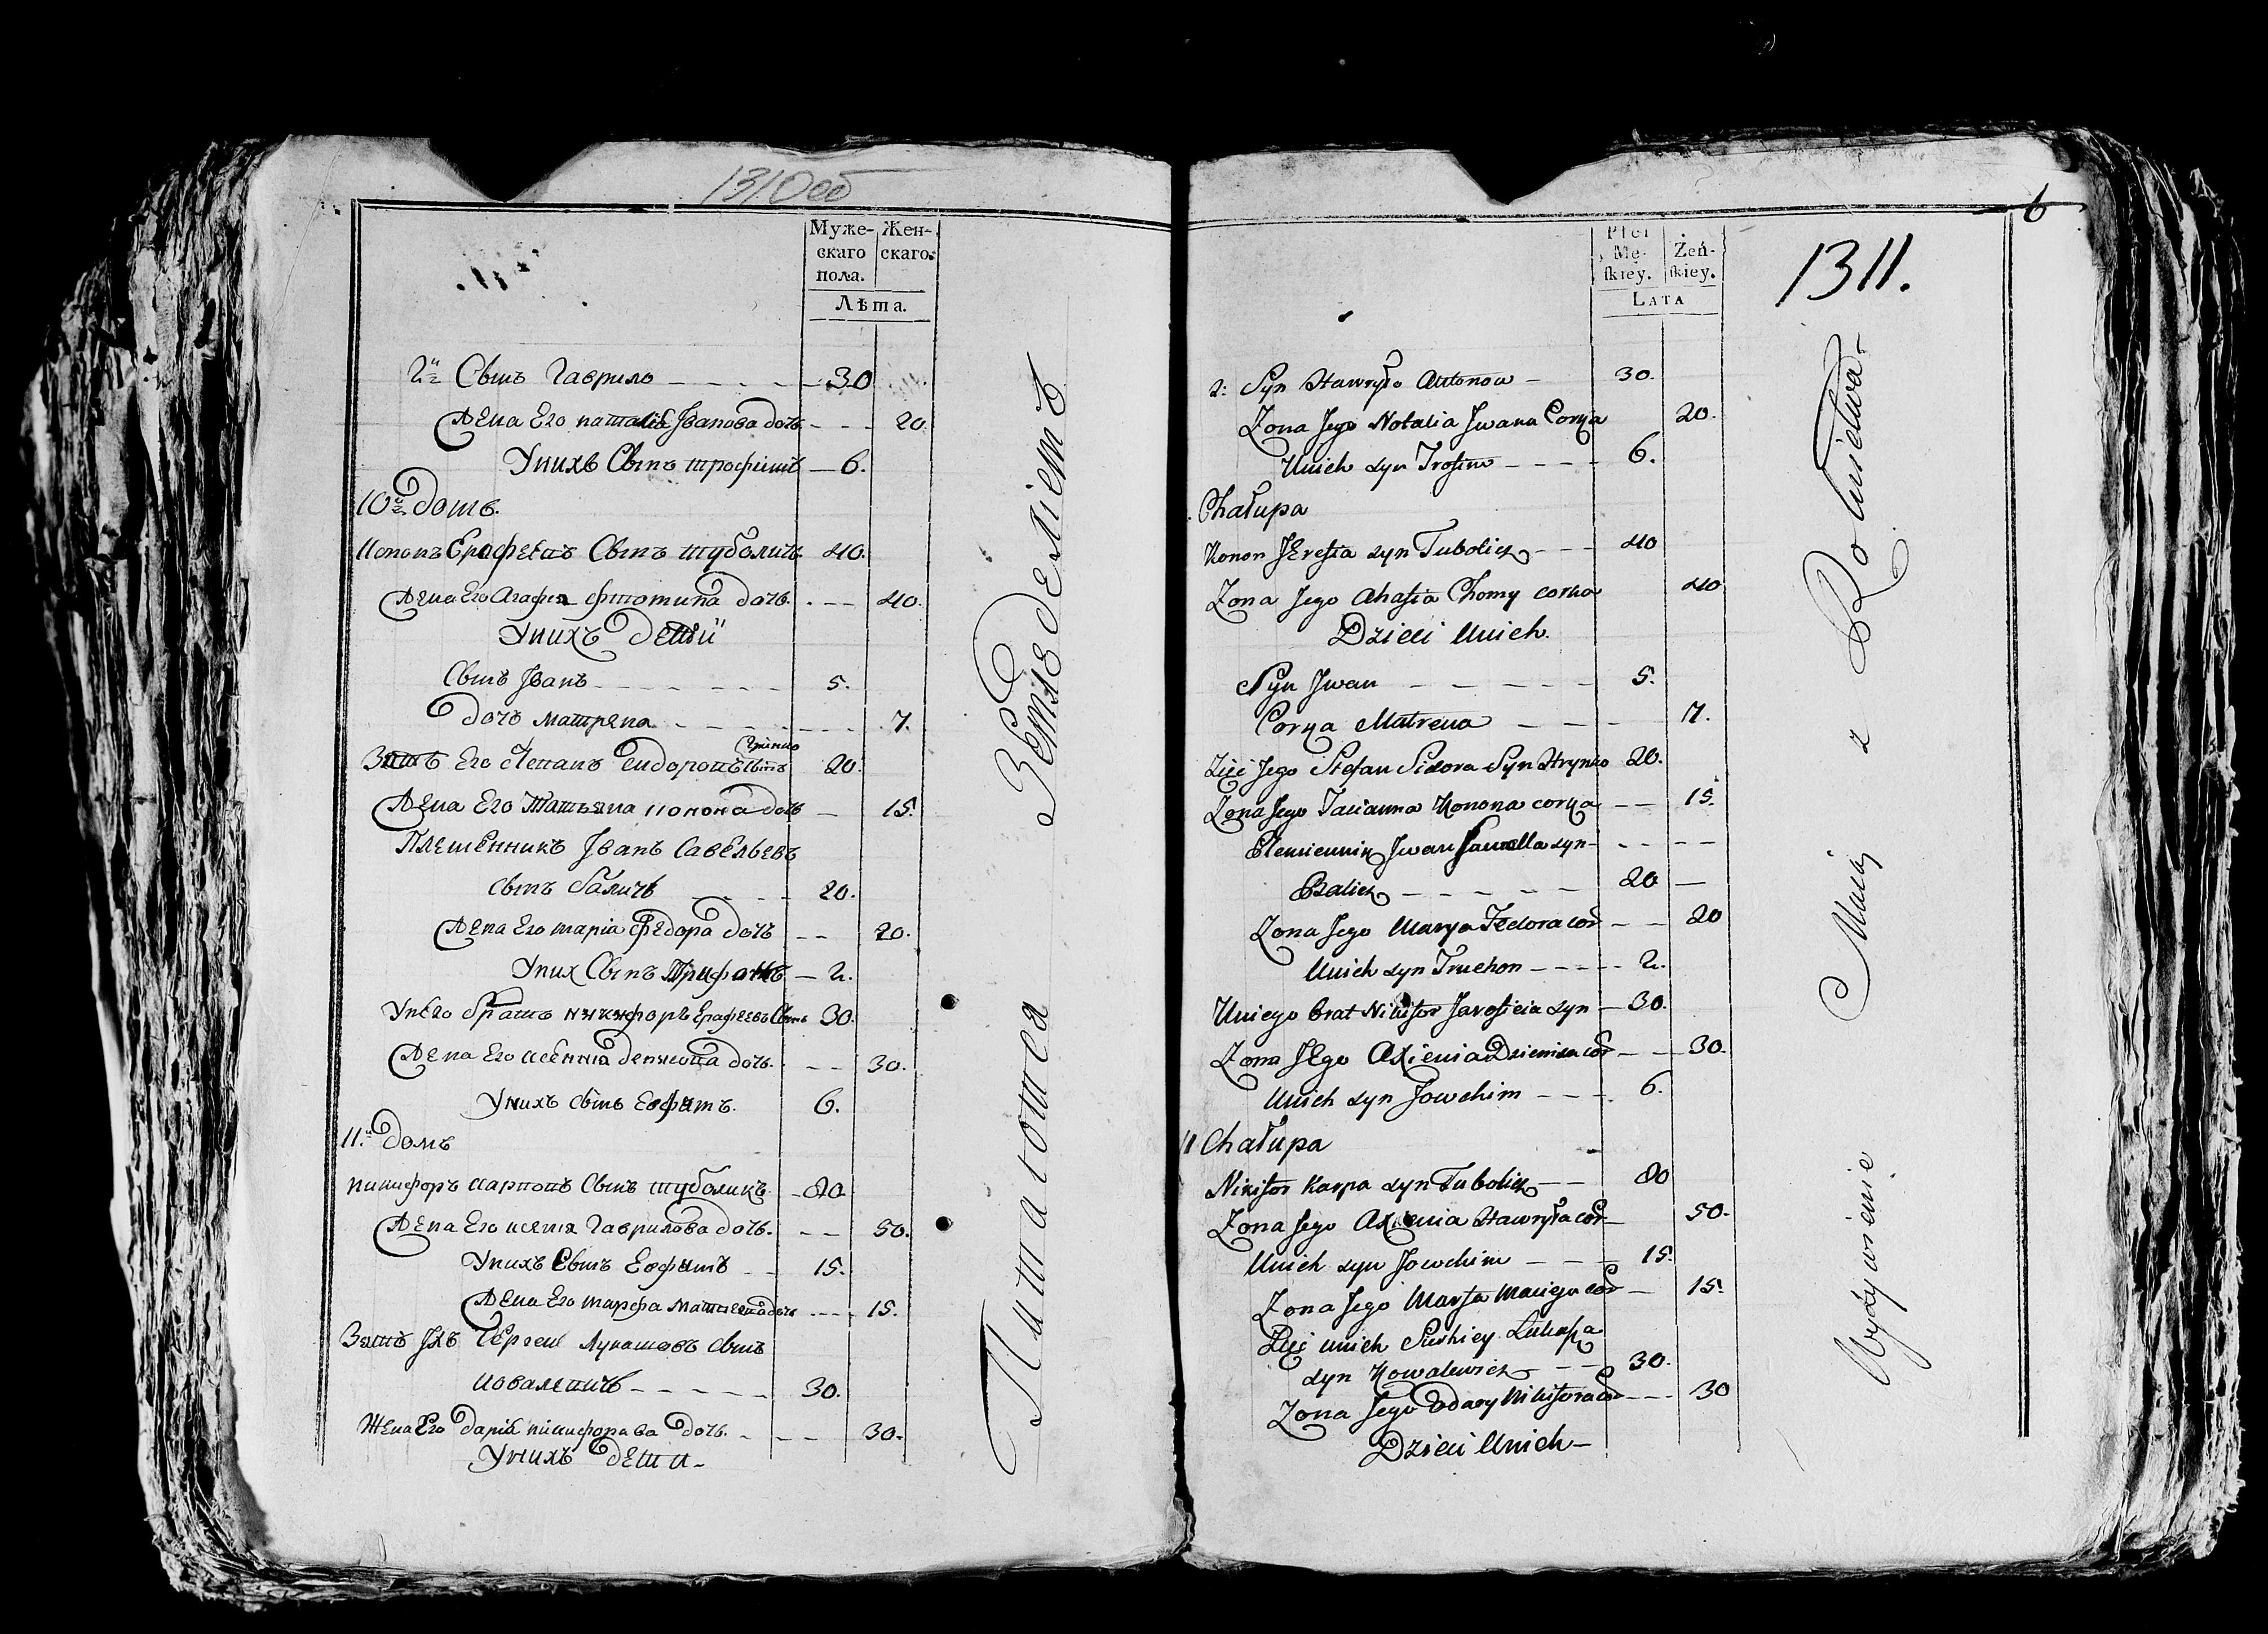 1310об
Муже-
скаго
пола.
Жен-
скаго.
Лѣта.
2й Сынъ Гаврило 30
Жена Его наталія Јванова дочь 20.
Унихъ Сынъ трофимъ 6.
10й домъ.
Кононъ Ерофеевъ Сынъ туболичъ 40.
Жена Его Агафия фтомина дочь. 40.
Унихъ дети
Сынъ Јванъ 5.
дочь матрена 7.
Зять Его Степанъ Сидоровъ Сынъ Гринко 20.
Жена Его Татьяна конона дочь 15.
Племенникъ Јванъ Савельевъ
сынъ баличъ 20.
Жена Его марiа федора дочь 20.
Уних Сынъ Трифонъ 2.
Унего братъ никифоръ Ерафеевъ Сынъ 30.
Жена Его ксенiя денисова дочь. 30.
Унихъ сынъ Еофимъ. 6.
11.й домъ
никифоръ карповъ Сынъ туболикъ. 80
Жена Его ксеня Гаврилова дочь. 50.
Унихъ Сынъ Еофимъ 15.
Жена Его марфа матвеева дочь 15.
Зять Јхъ Сергеи Лукашовъ сынъ
ковалевичъ 30.
Жена Его дарiя никифорава дочь. 30.
Унихъ дети
Питаютса Земледелiемъ
6
1311.
Płci
Mę-
ſkiey.
Żeń-
ſkiey.
LATA
2: Syn Hawryło Antonow 30.
Zona Jego Natalia Jwana Corka 20.
Unich syn Trofim 6.
Chałupa
Konon JErefia syn Tubolicz 40
Zona Jego Ahafia Chomy corka 40
Dzieci Unich.
Syn Jwan 5.
Corka Matrena 7.
Zięć Jego Stefan Sidora Syn Hrynko 20.
Zona Jego Tacianna Konona corka 15.
Plemiennik Jwan Sawella syn
Balicz 20
Zona Jego Marya Fedora cor 20
Unich syn Truchon 2.
Uniego brat Nikifor Jarofieia syn 30.
Zona JEgo Axienia Dzienisa cor 30.
Unich syn Jowchim 6.
11 Chałupa
Nikifor Karpa syn Tubolicz 80
Zona Jego Axienia Hawryła cor 50.
Unich syn Jowchim 15.
Zona Jego Marfa Macieja cor 15.
Zięć unich Sierhiey Łukasza
syn Kowalewicz 30.
Zona Jego Odary Nikifora cor 30
Dzieci Unich
Wyżywienie Maią z Rolnictwa